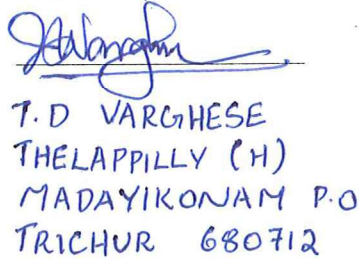 T.D VARGHESE
THELAPPILLY (H)
MADAYIKONAM P.O
TRICHUR 680712